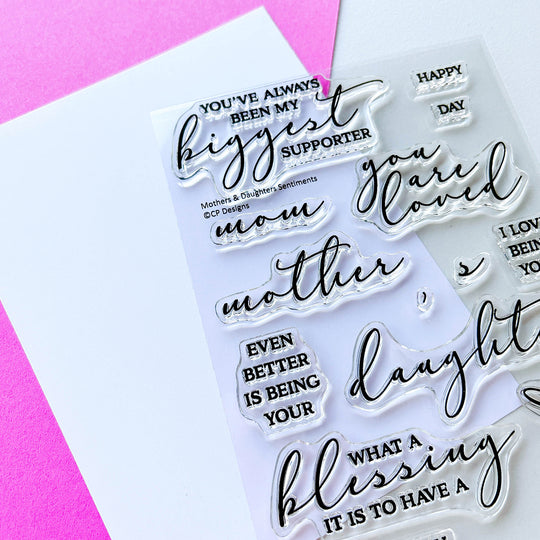 YOU'VE ALWAYS
BEEN MY
biggest
SUPPORTER
HAPPY
DAY
Mothers & Daughters Sentiments
©CP Designs
you
are
loved
mom
I LOVE
BEIN
YO
mother
'
s
EVEN
BETTER
IS BEING
YOUR
daught
WHAT A
blessing
IT IS TO HAVE A